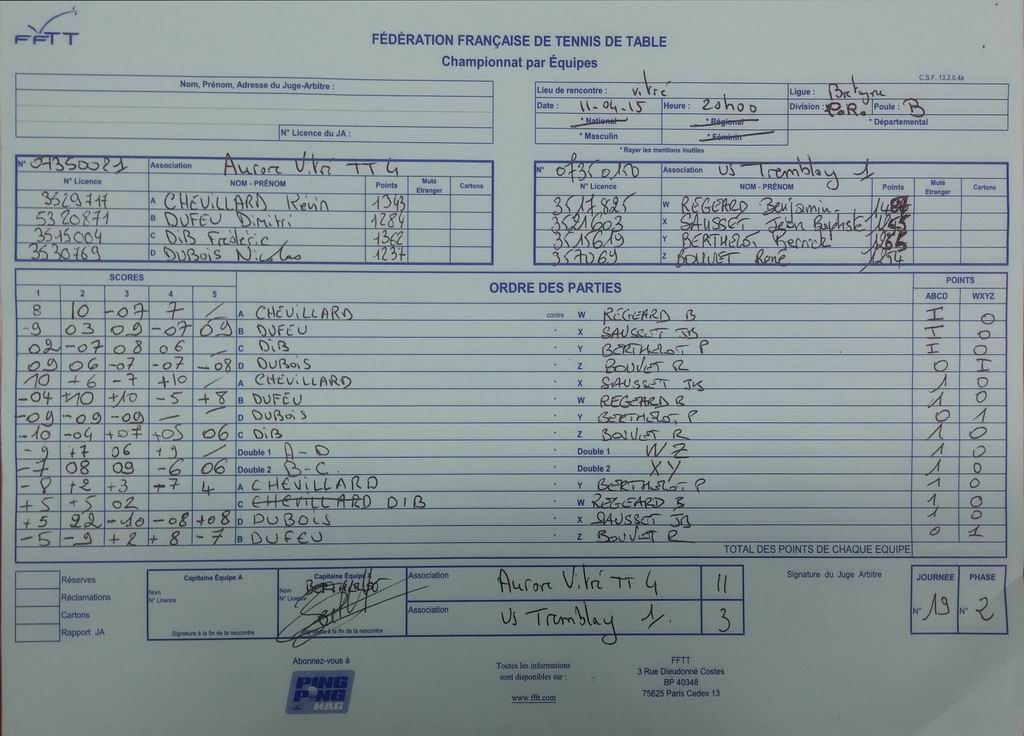 FFTT
FÉDÉRATION FRANÇAISE DE TENNIS DE TABLE
Championnat par Équipes
C.S.F. 13.2.0.4a
Nom, Prénom, Adresse du Juge-Arbitre :
N° Licence du JA :
Lieu de rencontre : Vitré Ligue : Bretagne
Date : 11-04-15 Heure : 20h00 Division : P.R. Poule : B
* National * Régional * Départemental
* Masculin * Féminin
* Rayer les mentions inutiles
N° 07350021 Association Aurore Vitré TT 4
N° Licence NOM - PRÉNOM Points Muté Etranger Cartons
3529717 A CHEVILLARD Kévin 1343
5320871 B DUFEU Dimitri 1284
3515004 C DIB Frédéric 1362
3530769 D DUBOIS Nicolas 1237
N° 07350150 Association US Tremblay 1
N° Licence NOM - PRÉNOM Points Muté Etranger Cartons
3517825 W REGEARD Benjamin
3521603 X SAUSSET Jean Baptiste
3515619 Y BERTHELOT
357069 Z BOUVET René 1254
SCORES ORDRE DES PARTIES POINTS
1 2 3 4 5 ABCD WXYZ
8 10 -07 7 / A CHEVILLARD contre W REGEARD B I 0
-9 03 09 -07 09 B DUFEU X SAUSSET JB I 0
02 -07 08 06 C DIB Y BERTHELOT P I 0
09 06 -07 -07 -08 D DUBOIS Z BOUVET R 0 I
10 +6 -7 +10 / A CHEVILLARD X SAUSSET JB 1 0
-04 +10 +10 -5 +8 B DUFEU W REGEARD B 1 0
-09 -09 -09 — D DUBOIS Y BERTHELOT P 0 1
-10 -04 +07 +05 06 C DIB Z BOUVET R 1 0
-9 +7 06 +9 / Double 1 A-D Double 1 WZ 1 0
-7 08 09 -6 06 Double 2 B-C. Double 2 XY 1 0
-8 +2 +3 -7 4 A CHEVILLARD Y BERTHELOT P 1 0
+5 +5 02 C CHEVILLARD DIB W REGEARD B 1 0
+5 22 -10 -08 +08 D DUBOIS X SAUSSET JB 1 0
-5 -9 +2 +8 -7 B DUFEU Z BOUVET R 0 1
TOTAL DES POINTS DE CHAQUE EQUIPE
Réserves
Réclamations
Cartons
Rapport JA
Capitaine Equipe A
Nom
N° Licence
Signature à la fin de la rencontre
Capitaine Équipe X
Nom
N° Licence
Signature à la fin de la rencontre
Association Aurore Vitré TT 4 11
Association US Tremblay 1. 3
Signature du Juge Arbitre
JOURNEE PHASE
N° 19 N° 2
Abonnez-vous à
PING PONG MAG
Toutes les informations
sont disponibles sur :
www.fftt.com
FFTT
3 Rue Dieudonné Costes
BP 40348
75625 Paris Cedex 13